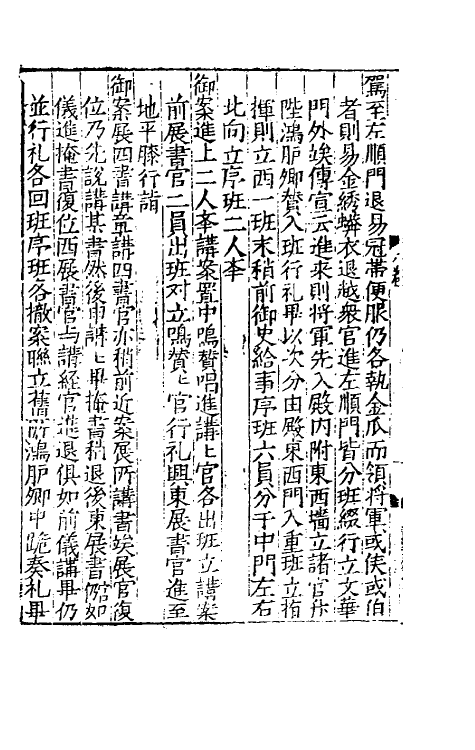 駕至左順門退易冠帶便服仍各執金瓜而領將軍或侯或伯
者則易金綉蟒衣退越衆官進左順門皆分班綴行立文華
門外候傳宣云進來則將軍先入殿内附東西墻立諸官升
陛鴻胪卿賛入班行礼畢以次分由殿東西門入重班立指
揮則立西一班末稍前御史給事序班六員分于中門左右
北向立序班二人牽
御案進上二人牽講案置中鳴賛唱進講〻官各出班立講案
前展書官二員出班对立鳴賛〻官行礼興東展書官進至
地平膝行詣
御案展四書講章講四書官亦稍前近案展所講書候展官復
位乃先說講某書然後申講〻畢掩書稍退後東展書仍如
儀進掩書復位西展書官与講経官進退俱如前儀講畢仍
並行礼各回班序班各撤案聯立舊所鴻胪卿中跪奏礼畢